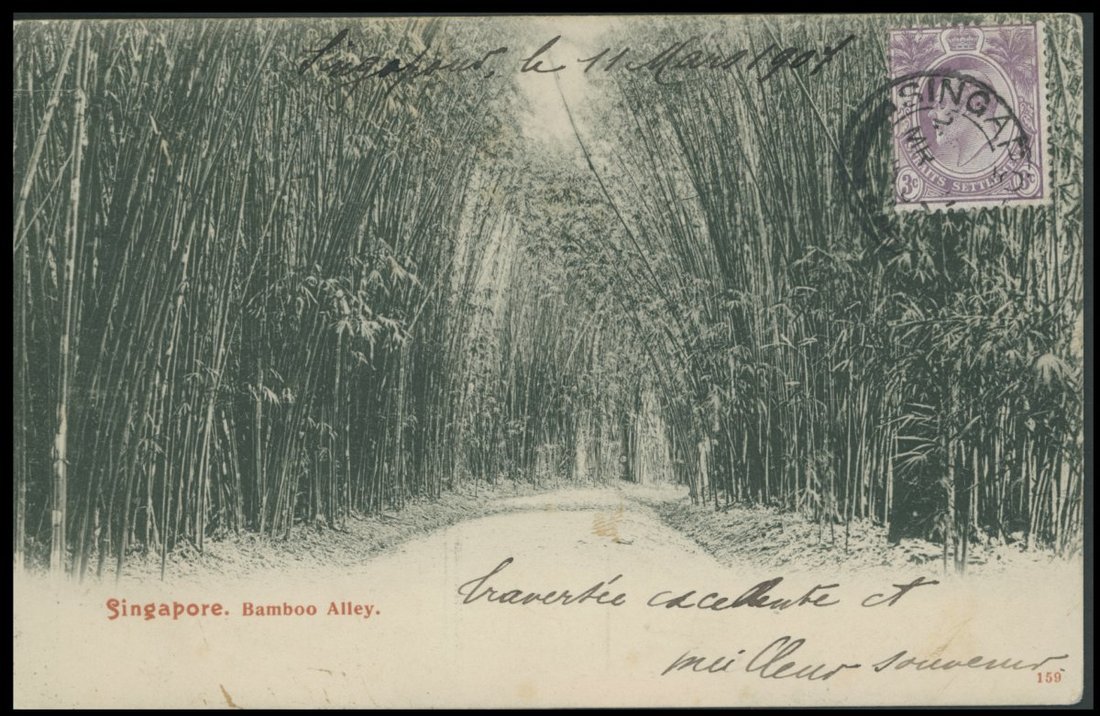 Singapour, le 11 Mars 1901
SINGAPO
MR
3c 3c
SETTLE
Singapore. Bamboo Alley.
Traversée excellente et
meilleur souvenir
159